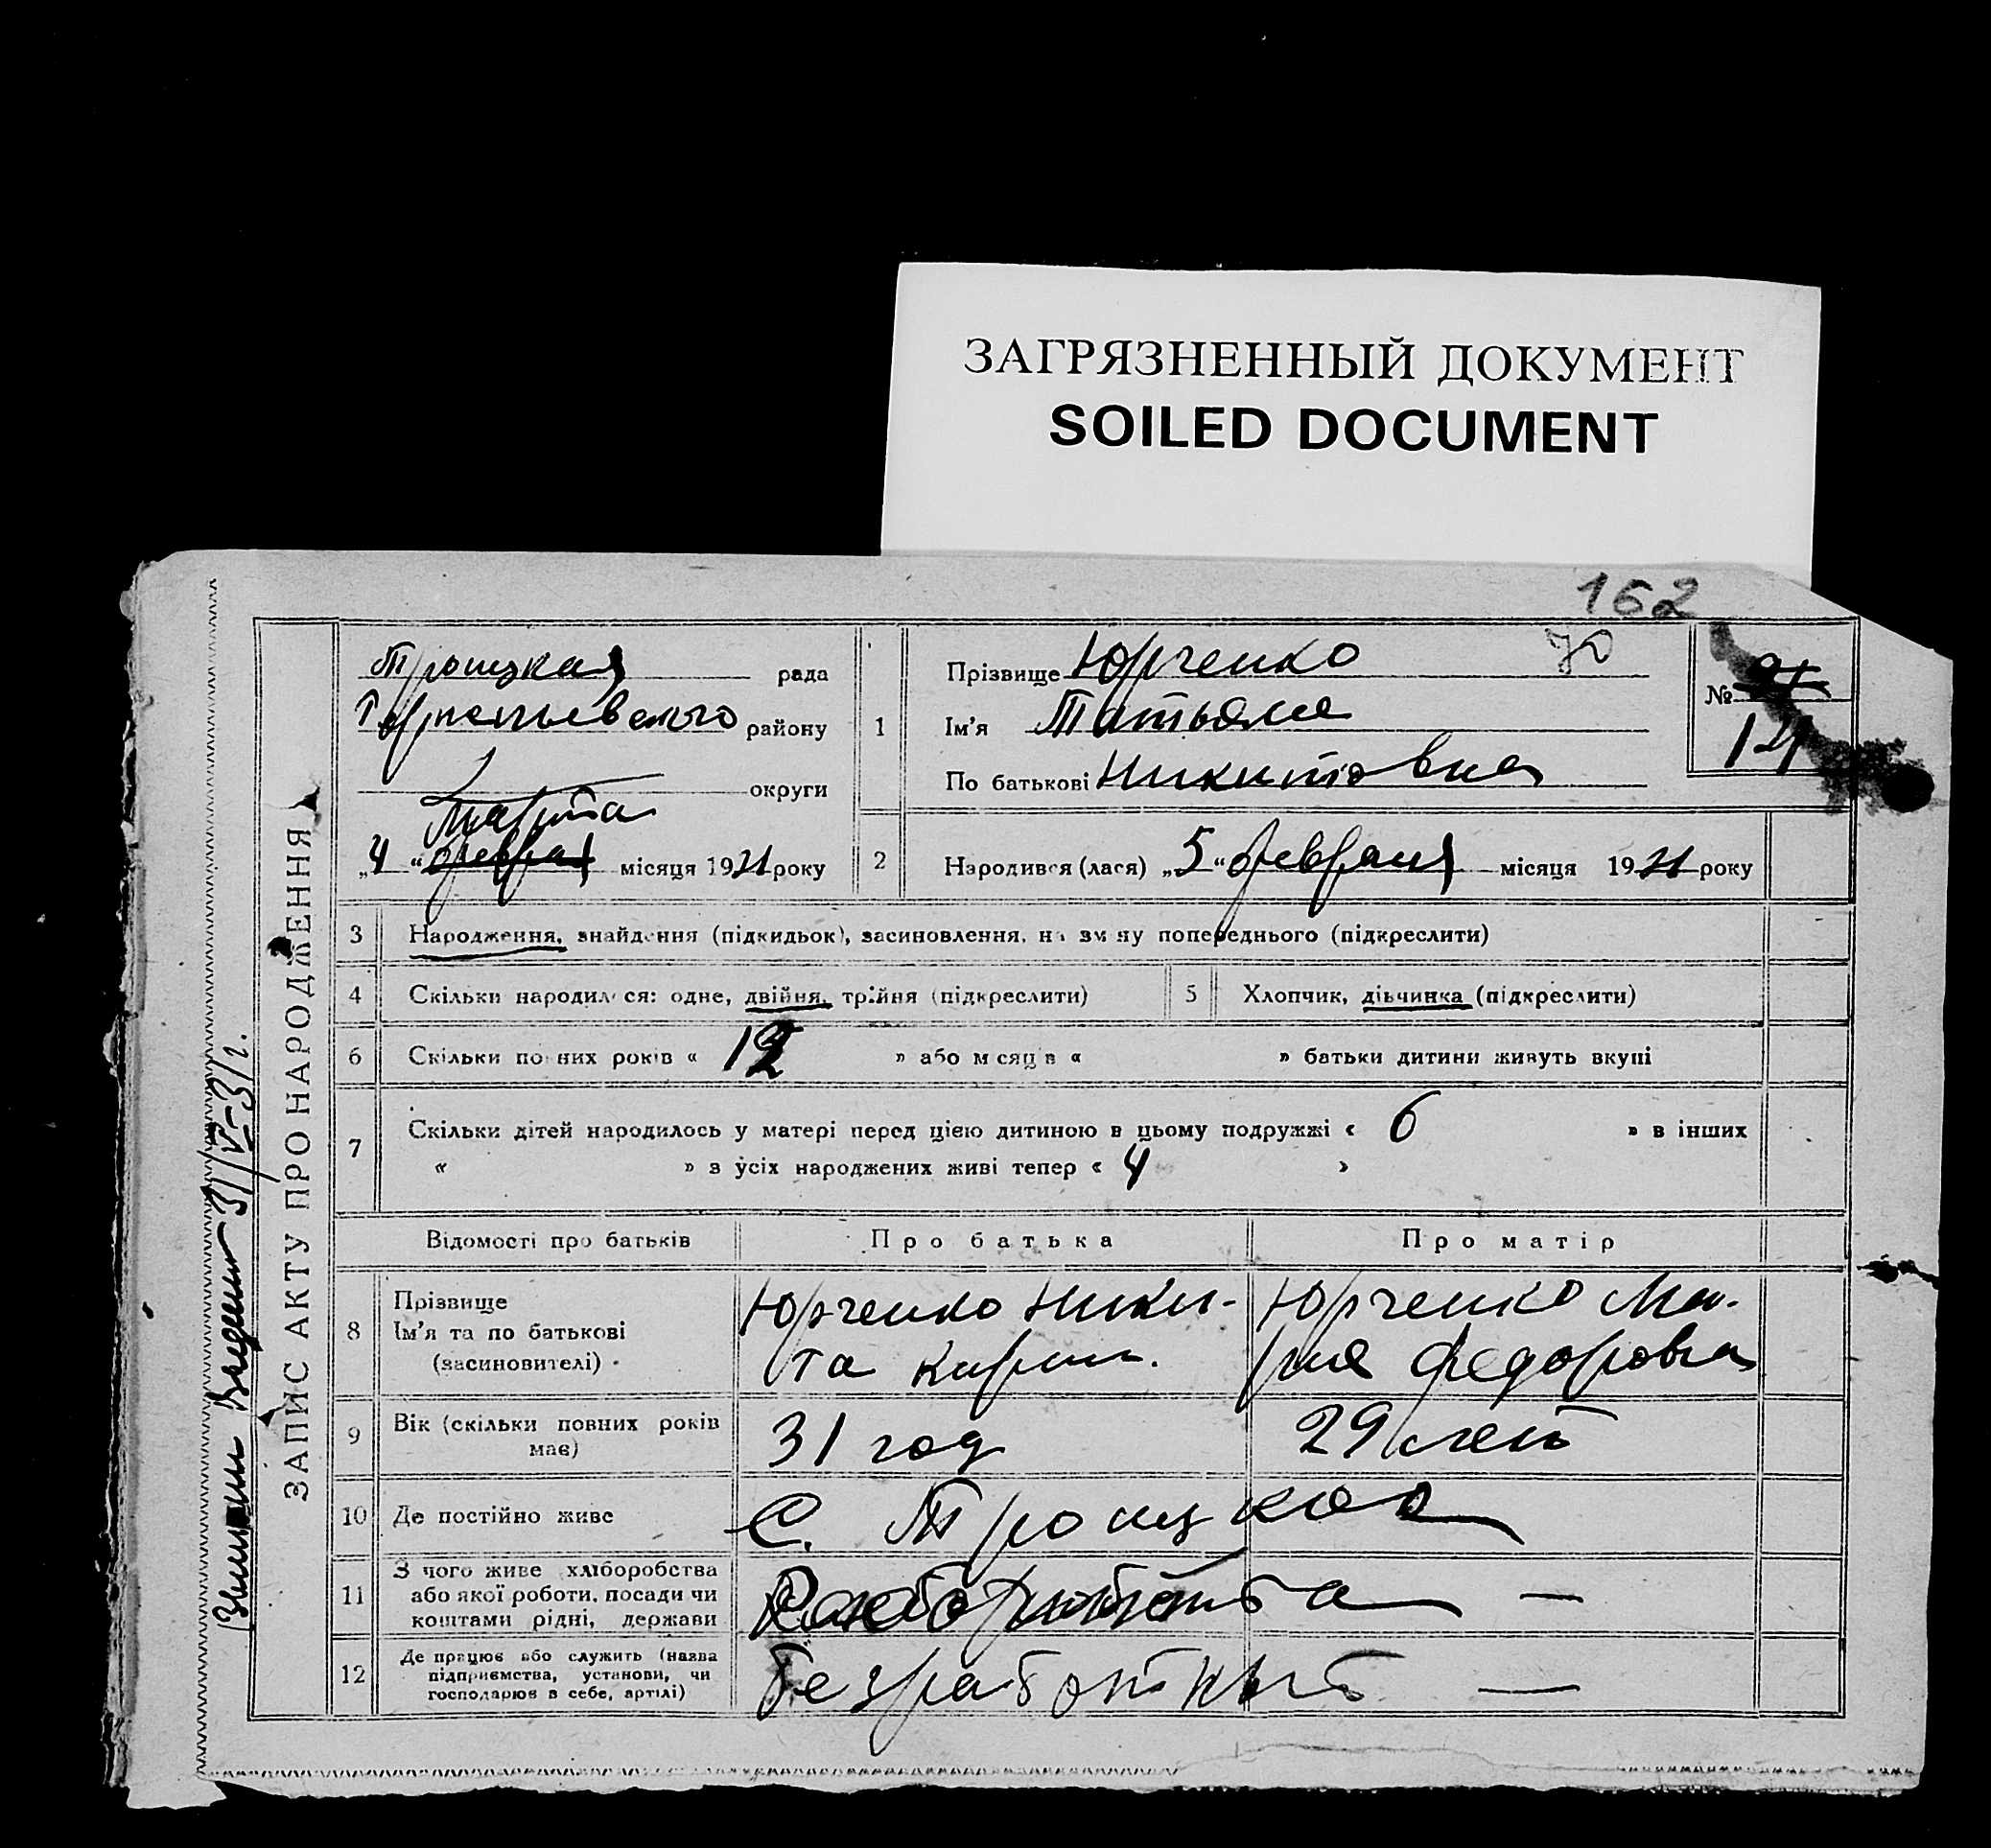 ЗАГРЯЗНЕННЫЙ ДОКУМЕНТ
SOILED DOCUMENT
162
ЗАПИС АКТУ ПРО НАРОДЖЕННЯ
31/V-31г.
Троицкая рада
району
округи
марта
„4“ феврая місяця 1931 року
1
Прізвище Юрченко
Ім'я Татьяна
По батькові Никитовна
№
14
2 Народився (лася) „5“ февраля місяця 1931 року
3 Народження, знайдення (підкидьок), засиновлення, на зміну попереднього (підкреслити)
4 Скільки народилося: одне, двійня, трійня (підкреслити)
5 Хлопчик, дівчинка (підкреслити)
6 Скільки повних років « 12 » або місяців « » батьки дитини живуть вкупі
7 Скільки дітей народилось у матері перед цією дитиною в цьому подружжі « 6 » в інших
« » з усіх народжених живі тепер « 4 »
Відомості про батьків Про батька Про матір
8 Прізвище
Ім'я та по батькові
(засиновителі)
Юрченко Ники-
та Кирил.
Юрченко Ма-
рия Федоровна
9 Вік (скільки повних років
має)
31 год
29 лет
10 Де постійно живе с. Троицкое
11 З чого живе хліборобства
або якої роботи, посади чи
коштами рідні, держави
—
12 Де працює або служить (назва
підприємства, установи, чи
господарює в себе, артілі)
—